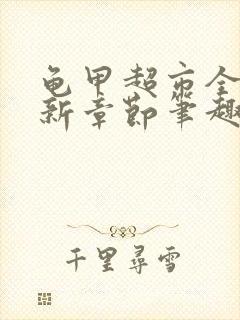 龟甲超市全
新章节笔趣
千里寻雪